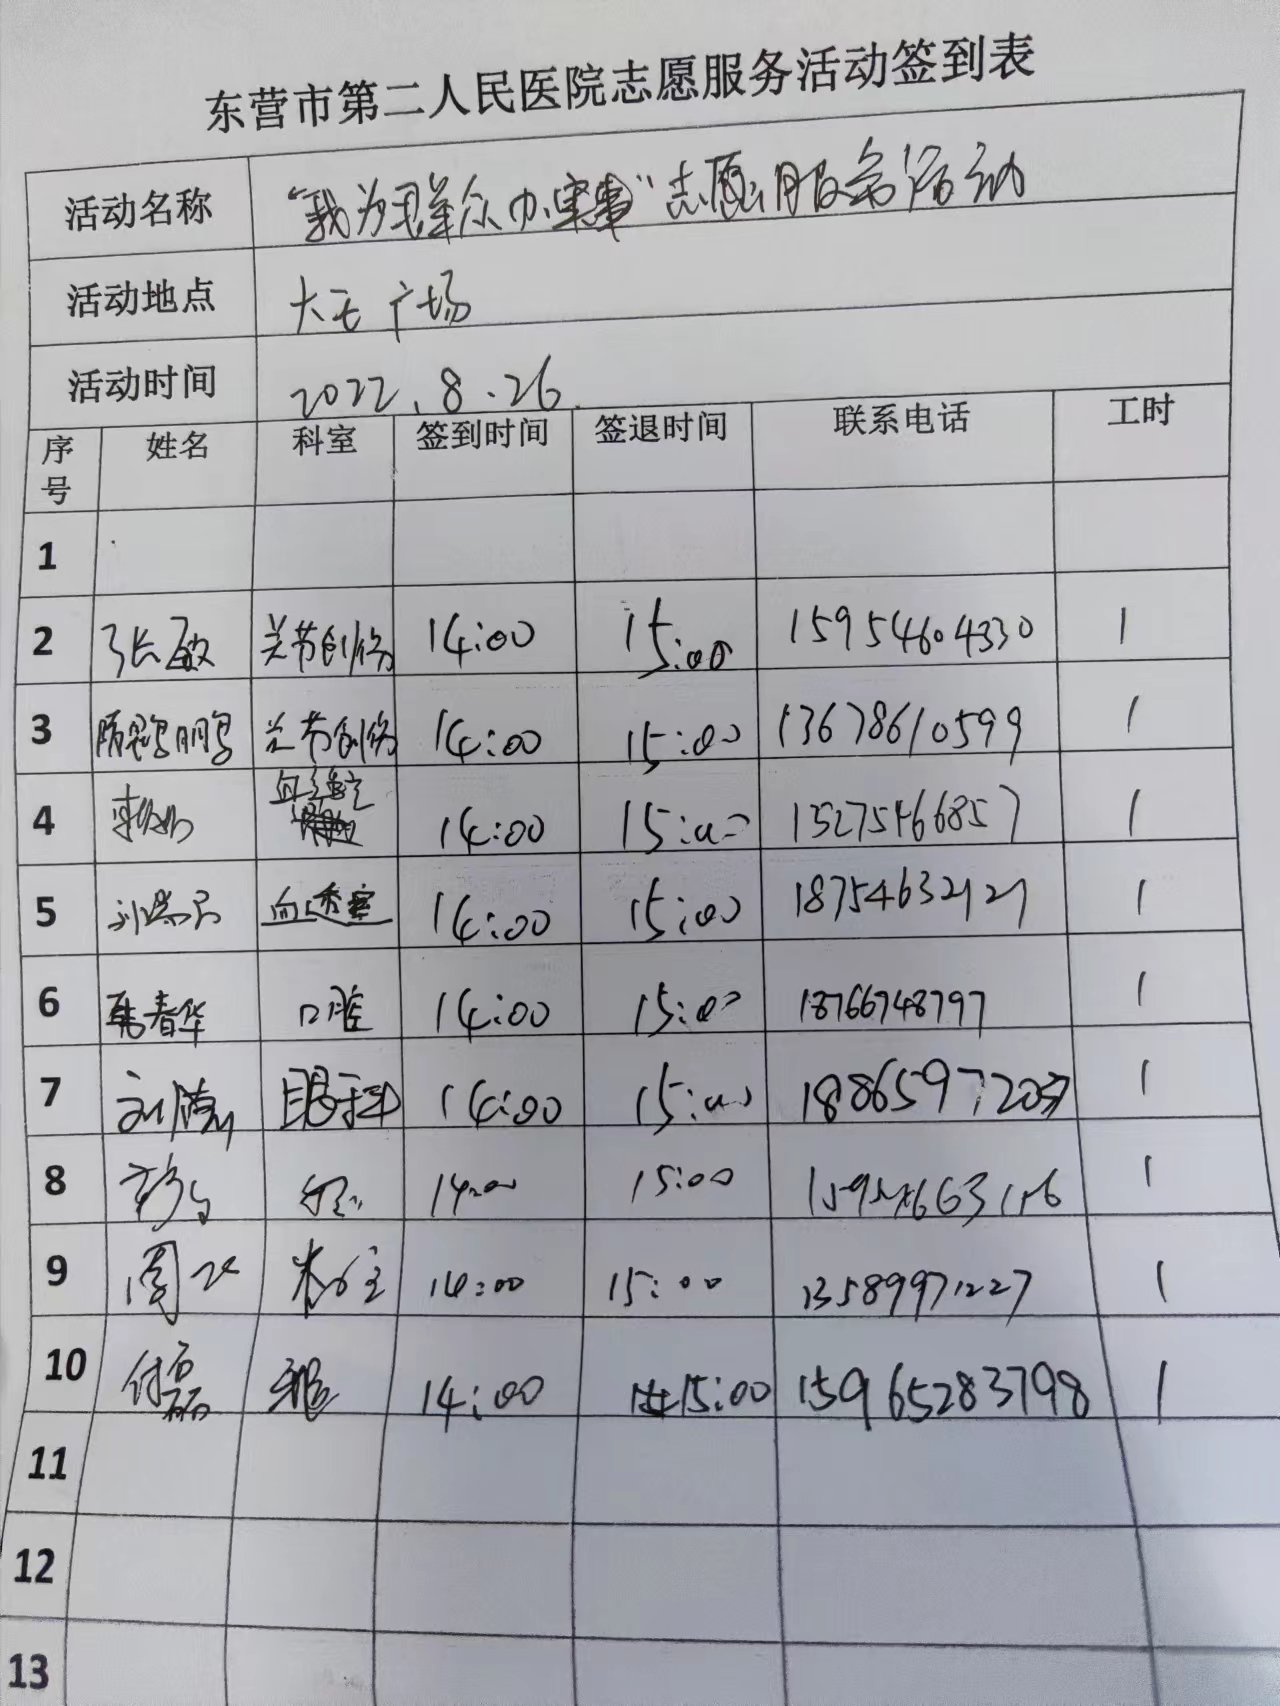 东营市第二人民医院志愿服务活动签到表
活动名称 “我为群众办实事”志愿服务活动
活动地点 大王广场
活动时间 2022.8.26
序号 姓名 科室 签到时间 签退时间 联系电话 工时
1
2 张敏 关节创伤 14:00 15:00 15954604330 1
3 关节创伤 14:00 15:00 13678610599 1
4 14:00 15:00 15275466857 1
5 血透室 14:00 15:00 18754632121 1
6 韩春华 口腔 14:00 15:00 18766748797 1
7 眼科 14:00 15:00 1
8 14:00 15:00 1
9 周 14:00 15:00 13589971227 1
10 付磊 14:00 15:00 15965283798 1
11
12
13